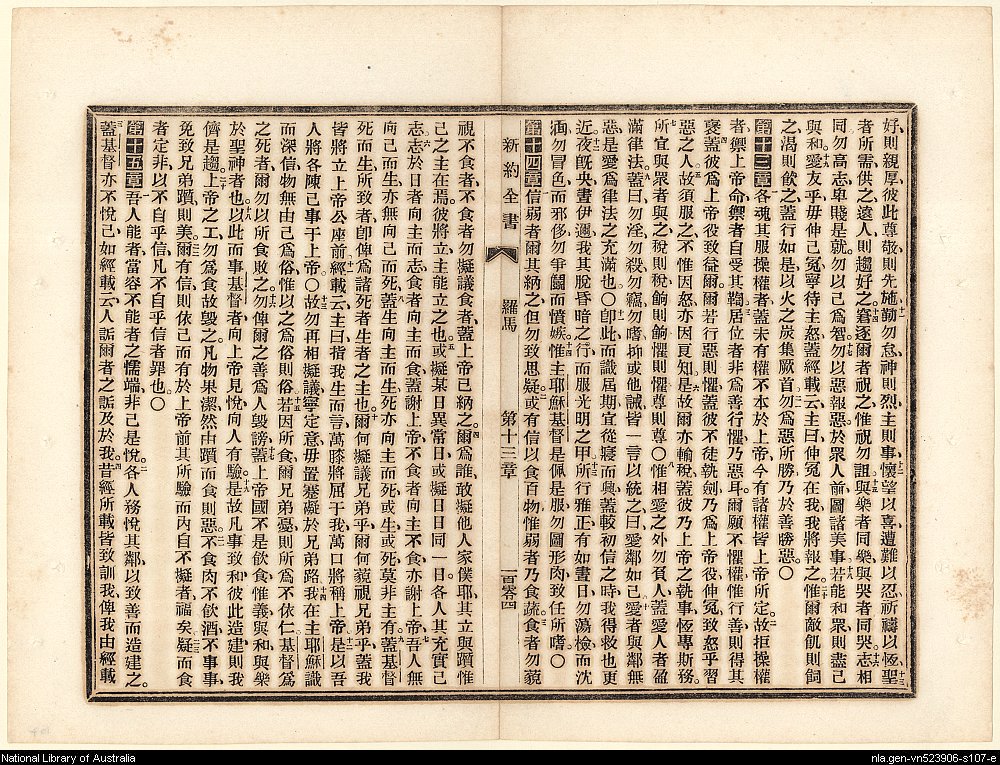 好則親厚彼此尊敬則先施勤勿怠神則烈主則事懷望以喜遭難以忍祈禱以恆聖
者所需供之遠人則趨好之窘逐爾者祝之惟祝勿詛與樂者同樂與哭者同哭志相
同勿高志卑賤是就勿以己爲智勿以惡報惡於衆人前圖諸美事若能和衆則盡己
與和愛友乎毋伸己冤寧待主怒蓋經載云主曰伸冤在我我將報之惟爾敵飢則飼
之渴則飲之蓋行如是以火之炭集厥首勿爲惡所勝乃於善勝惡〇
第十三章各魂其服操權者蓋未有權不本於上帝今有諸權皆上帝所定故拒操權
者禦上帝命禦者自受其鞫居位者非爲善行懼乃惡耳爾願不懼權惟行善則得其
褒蓋彼爲上帝役致益爾爾若行惡則懼蓋彼不徒執劍乃爲上帝役伸冤致怒乎習
惡之人故須服之不惟因怒亦因良知是故爾亦輸稅蓋彼乃上帝之執事恆專斯務
所宜與衆者與之稅則稅餉則餉懼則懼尊則尊〇惟相愛之外勿負人蓋愛人者盈
滿律法蓋曰勿淫勿殺勿竊勿嗜抑或他誡皆一言以統之曰愛鄰如己愛者與鄰無
惡是愛爲律法之充滿也〇卽此而識屆期宜從寢而興蓋較初信之時我得救也更
近夜旣央晝伊邇我其脫昏暗之行而服光明之甲所行雅正有如晝日勿蕩檢而沈
湎勿冒色而邪侈勿爭鬬而憤嫉惟主耶穌基督是佩是服勿圖形肉致任所嗜〇
第十四章信弱者爾其納之但勿致思疑或有信以食百物惟弱者乃食蔬食者勿藐
新約全書
羅馬
第十三章
一百零四
視不食者不食者勿擬議食者蓋上帝已納之爾爲誰敢擬他人家僕耶其立與躓惟
己之主在焉彼將立主能立之也或擬某日異常日或擬日日同一日各人其充實己
志志於日者向主而志食者向主而食蓋謝上帝不食者向主不食亦謝上帝吾人無
向己而生亦無向己而死蓋生向主而生死亦向主而死或生或死莫非主有蓋基督
死而生所致者卽俾爲諸死者生者之主也爾何擬議兄弟乎爾何藐視兄弟乎蓋我
皆將立上帝公座前經載云主曰指我生而言萬膝將屈于我萬口將稱上帝是以吾
人將各陳己事于上帝〇故勿再相擬議寧定意毋置蹇礙於兄弟路我在主耶穌識
而深信物無由己爲俗惟以之爲俗則俗若因所食爾兄弟憂則所爲不依仁基督爲
之死者爾勿以所食敗之勿俾爾之善爲人毀謗蓋上帝國不是飲食惟義與和與樂
於聖神者也以此而事基督者向上帝見悅向人有驗是故凡事致和彼此造建則我
儕是趨上帝之工勿爲食故毀之凡物果潔然由躓而食則惡不食肉不飲酒不事事
免致兄弟躓則美爾有信則依己而有於上帝前其所驗而內自不擬者福矣疑而食
者定非以不自乎信凡不自乎信者罪也〇
第十五章吾人能者當容不能者之懦端非己是悅各人務悅其鄰以致善而造建之
蓋基督亦不悅己如經載云人詬爾者之詬及於我昔經所載皆致訓我俾我由經載
National Library of Australia
nla.gen-vn523906-s107-e